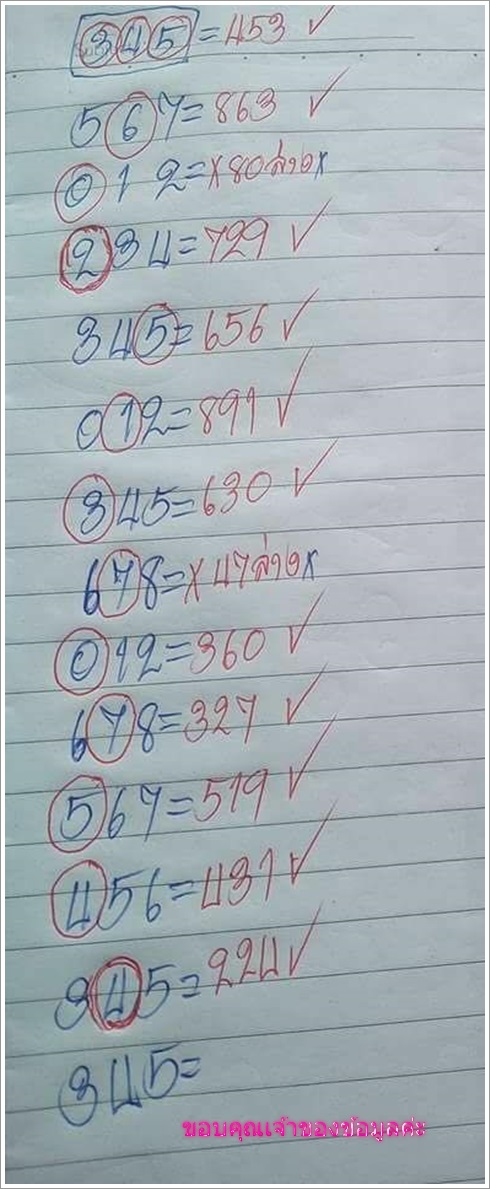 345 = 453 ✓
567 = 863 ✓
012 = x 80ล่าง x
234 = 729 ✓
345 = 656 ✓
012 = 891 ✓
345 = 630 ✓
678 = x 47ล่าง x
012 = 360 ✓
678 = 327 ✓
567 = 519 ✓
456 = 431 ✓
345 = 224 ✓
345 =
ขอบคุณเจ้าของข้อมูลค่ะ